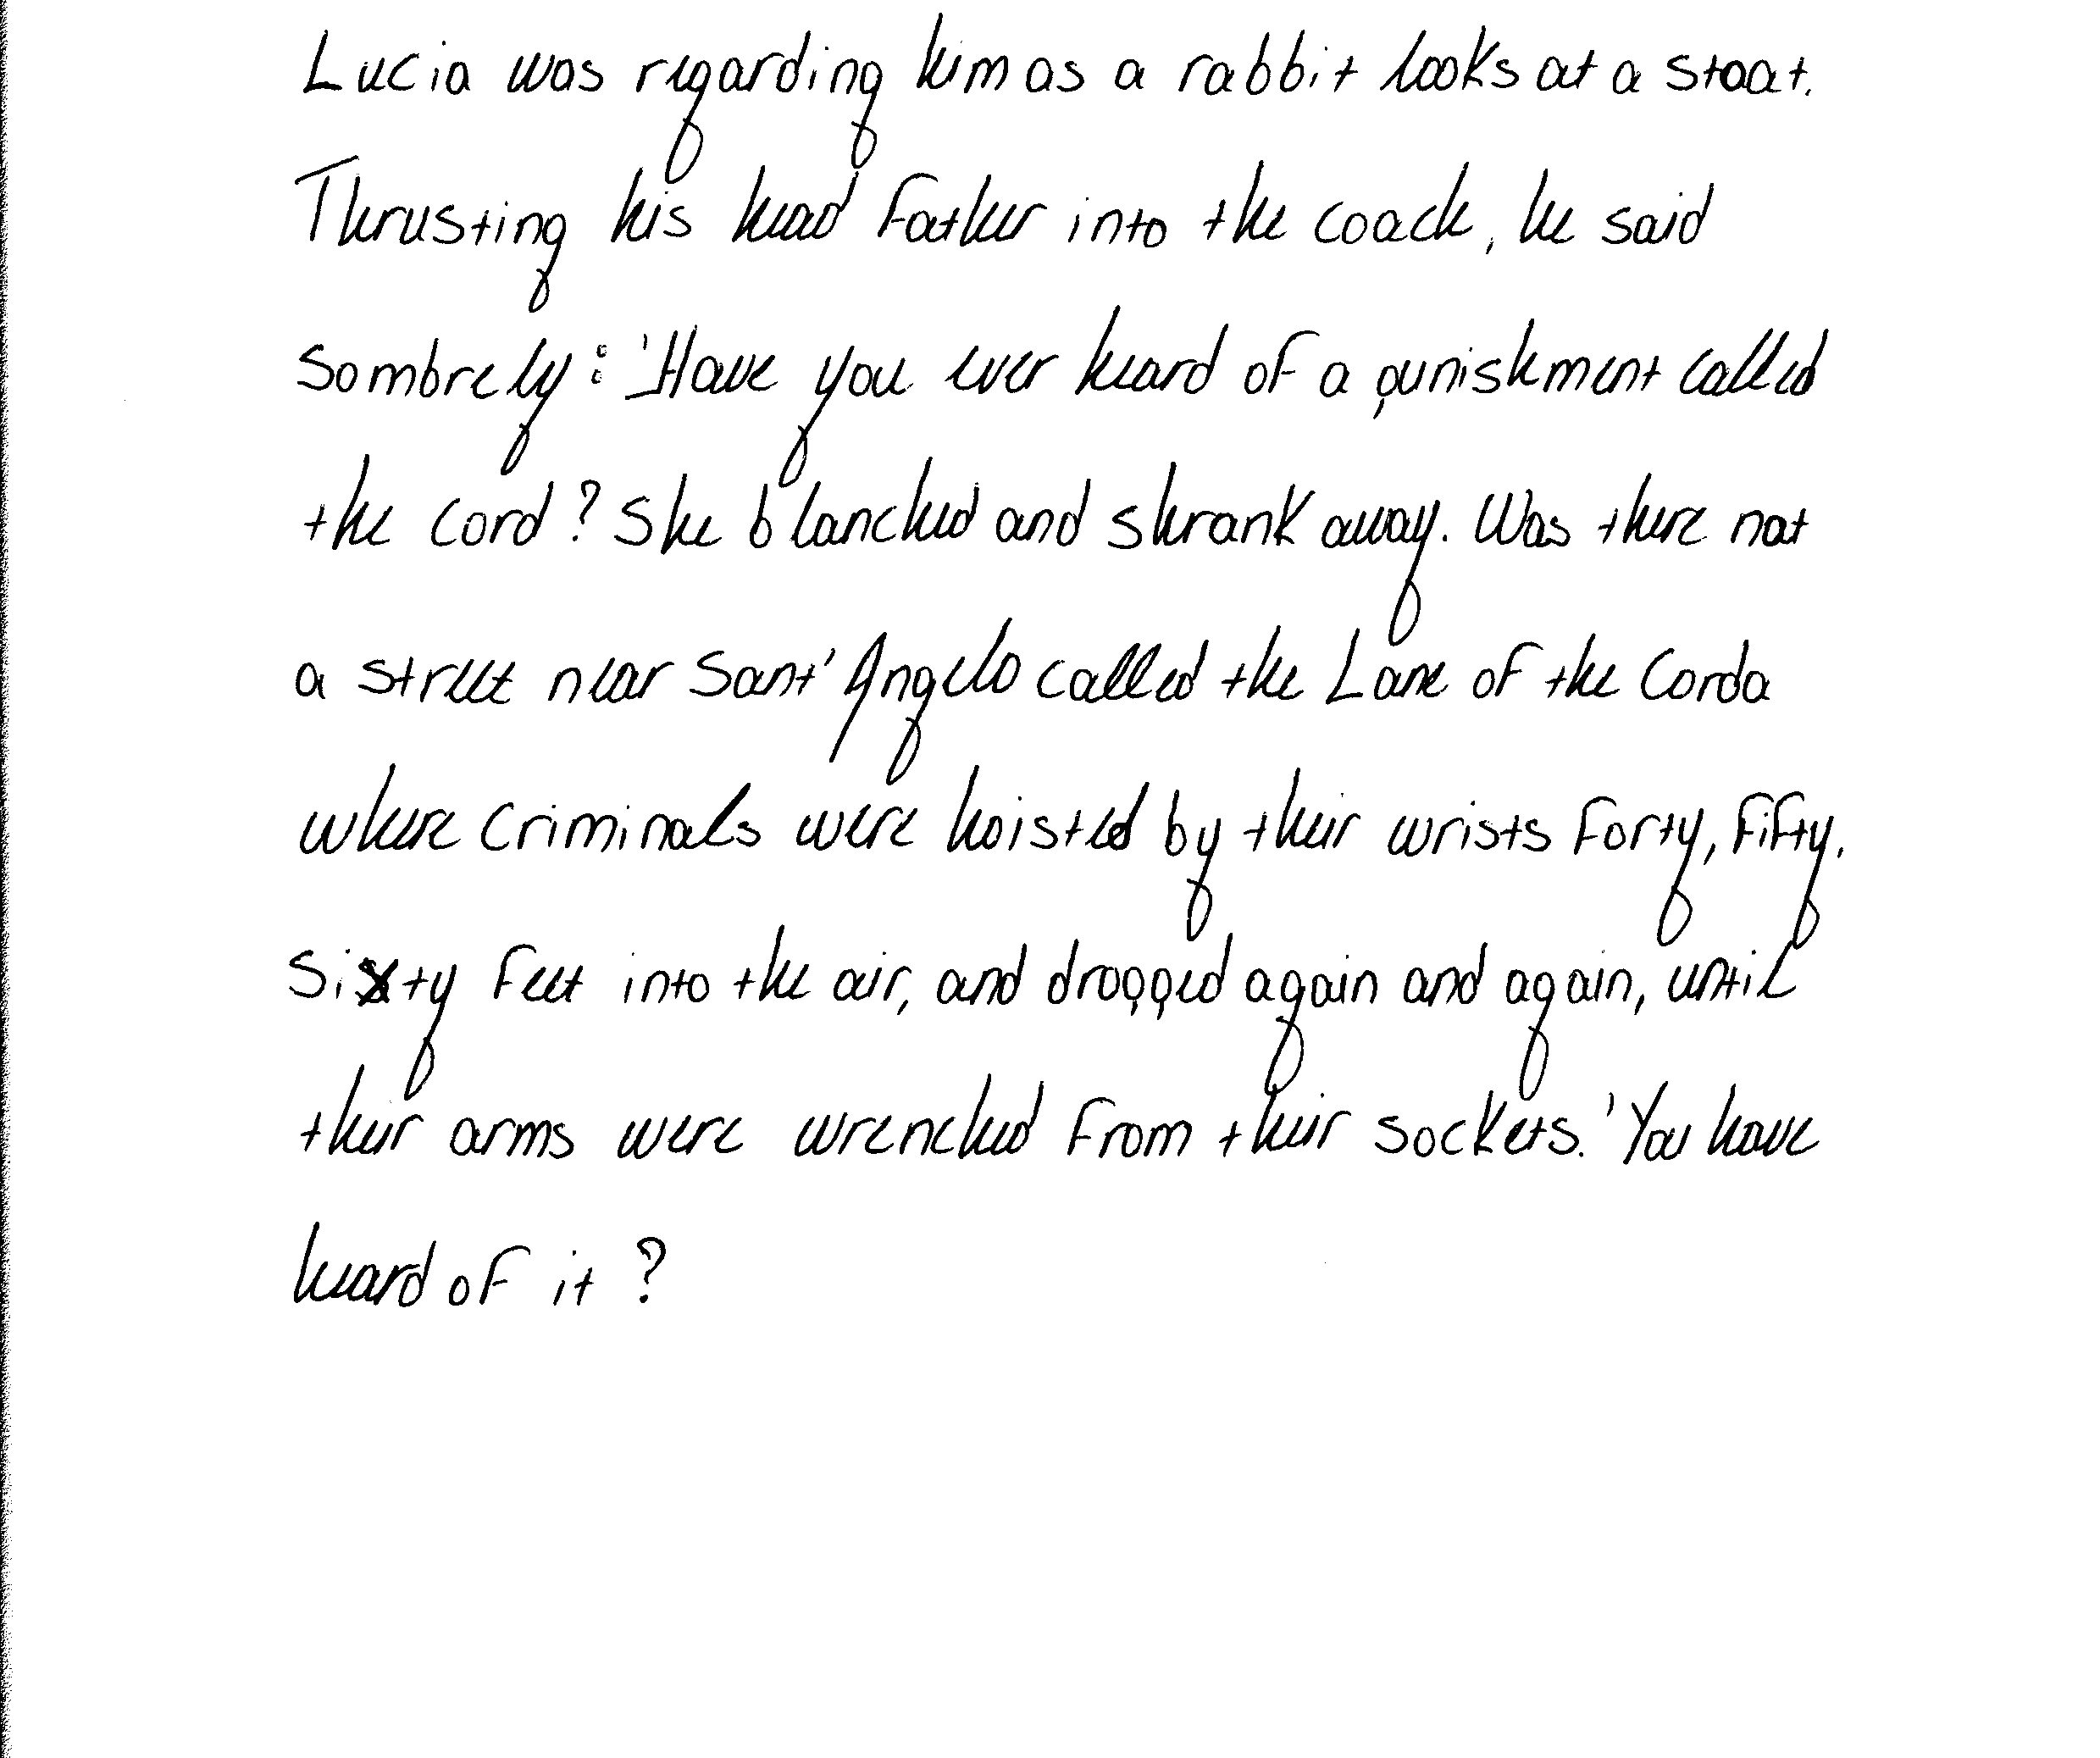 Lucia was regarding him as a rabbit looks at a stoat.
Thrusting his head father into the coach, he said
sombrely: 'Have you ever heard of a punishment called
the cord? She blanched and shrank away. Was there not
a street near Sant' Angelo called the Lane of the Corda
where criminals were hoisted by their wrists forty, fifty,
sixty feet into the air, and dropped again and again, until
their arms were wrenched from their sockets. 'You have
heard of it?